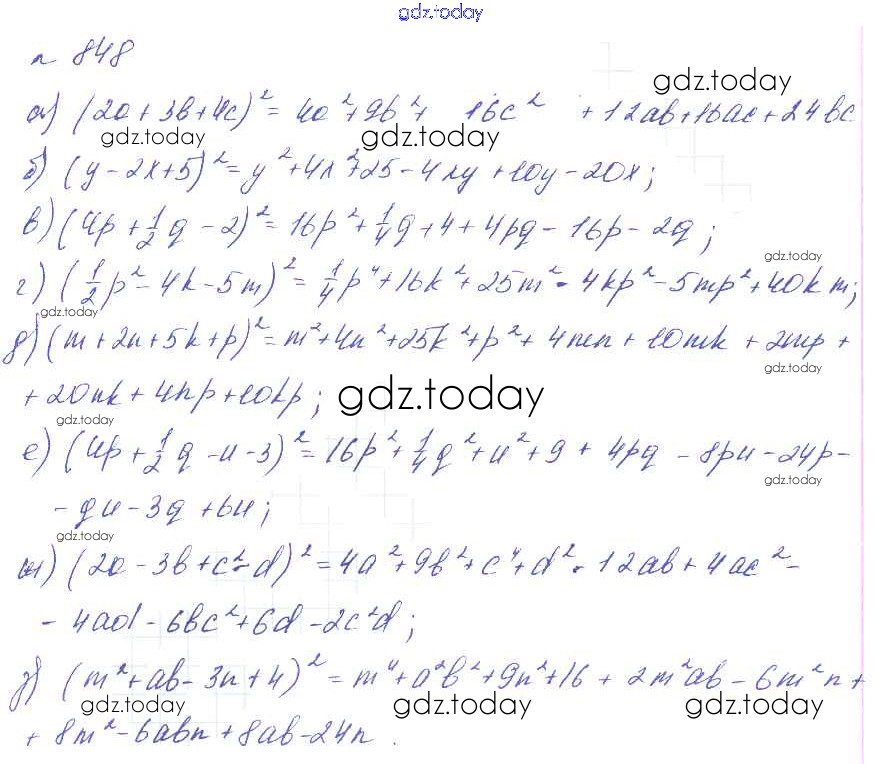 gdz.today
№ 848
gdz.today
а) (2a + 3b + 4c)² = 4a² + 9b² + 16c² + 12ab + 16ac + 24bc
gdz.today gdz.today
б) (y - 2x + 5)² = y² + 4x² + 25 - 4xy + 10y - 20x;
в) (4p + 1/2 q - 2)² = 16p² + 1/4 q + 4 + 4pq - 16p - 2q;
gdz.today
г) (1/2 p² - 4k - 5m)² = 1/4 p⁴ + 16k² + 25m² - 4kp² - 5mp² + 40km;
gdz.today
д) (m + 2n + 5k + p)² = m² + 4n² + 25k² + p² + 4mn + 10mk + 2mp +
+ 20nk + 4np + 10kp;
gdz.today
gdz.today
е) (4p + 1/2 q - u - 3)² = 16p² + 1/4 q² + u² + 9 + 4pq - 8pu - 24p -
gdz.today
- qu - 3q + 6u;
gdz.today
ж) (2a - 3b + c² - d)² = 4a² + 9b² + c⁴ + d² - 12ab + 4ac² -
- 4ad - 6bc² + 6d - 2c²d;
з) (m² + ab - 3n + 4)² = m⁴ + a²b² + 9n² + 16 + 2m²ab - 6m²n +
gdz.today gdz.today gdz.today
+ 8m² - 6abn + 8ab - 24n.